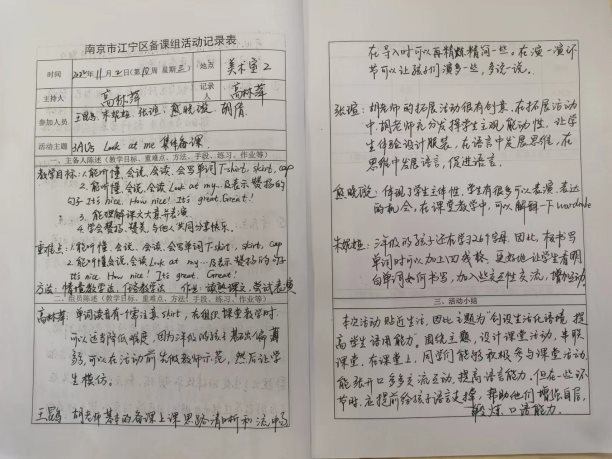 南京市江宁区备课组活动记录表
时间 2022年11月2日(第10周 星期三) 地点 美术室2
主持人 高林萍 记录人 高林萍
参加人员 王昆鸟 朱擎梅 张滢 熊晓薇 胡倩
活动主题 3AU5 Look at me 集体备课
一、主备人陈述(教学目标、重难点、方法、手段、练习、作业等)
教学目标:1.能听懂、会说、会读、会写单词T-shirt, skirt, cap
2.能听懂、会说、会读Look at my...及表示赞扬的
句子It's nice. How nice! It's great. Great!
3.能理解课文大意并表演
4.学会赞扬、赞美、与他人共同分享快乐.
重难点:1.能听懂、会说、会读、会写单词T shirt, skirt, cap
2.能听懂会说会读Look at my...及表示赞扬的句子
It's nice. How nice! It's great. Great!
方法:情境教学法、任务教学法 作业:读熟课文,尝试表演
二、组员陈述(教学目标、重难点、方法、手段、练习、作业等)
高林萍:单词读音有一个需注意skirt,在组织课堂教学时
可以适当降低难度,因为三年级的孩子基础偏薄
弱,可以在活动前先做教师示范,然后让学
生模仿。
王昆鸟:胡老师基本的备课上课思路清晰和流畅
在导入时可以再精炼精问一些。在演一演环
节可以让孩子们演多一些,多说一说。
张滢:胡老师的拓展活动很有创意。在拓展活动
中,胡老师充分发挥学生主观能动性,让学
生体验设计服装,在语言中发展思维,在
思维中发展语言,促进语言。
熊晓薇:体现了学生主体性,学生有很多可以表演、表达
的机会,在课堂教学中,可以解释一下wardrobe
朱擎梅:三年级的孩子还在学习26个字母,因此,板书写
单词时可以加上四线格,更好地让学生看明
白单词如何书写,加入些交互性交流,增加互动
三、活动小结
本次活动贴近生活,因此主题为"创设生活化语境,提
高学生语用能力"。围绕主题,设计课堂活动,串联
课堂。在课堂上,同学们能够积极参与课堂活动,
能张开口多多交流互动,提高语言能力。但在一些环
节时,应提前给孩子语言支撑,帮助他们增强自信,
锻炼口语能力。